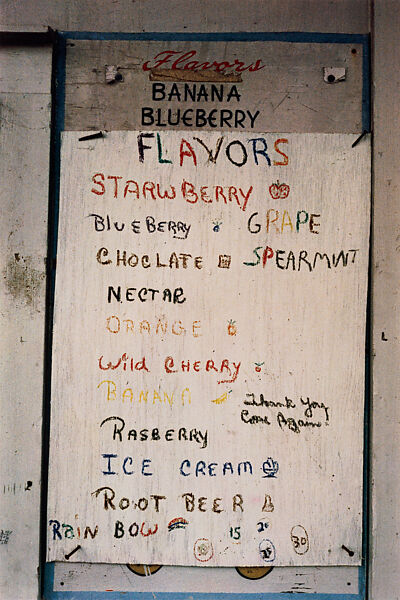 Flavors
BANANA
BLUEBERRY
FLAVORS
STARWBERRY
BLUEBERRY GRAPE
CHOCLATE SPEARMINT
NECTAR
ORANGE
Wild CHERRY
BANANA
Thank You
Come Again
RASBERRY
ICE CREAM
ROOT BEER
RAIN BOW 15
30